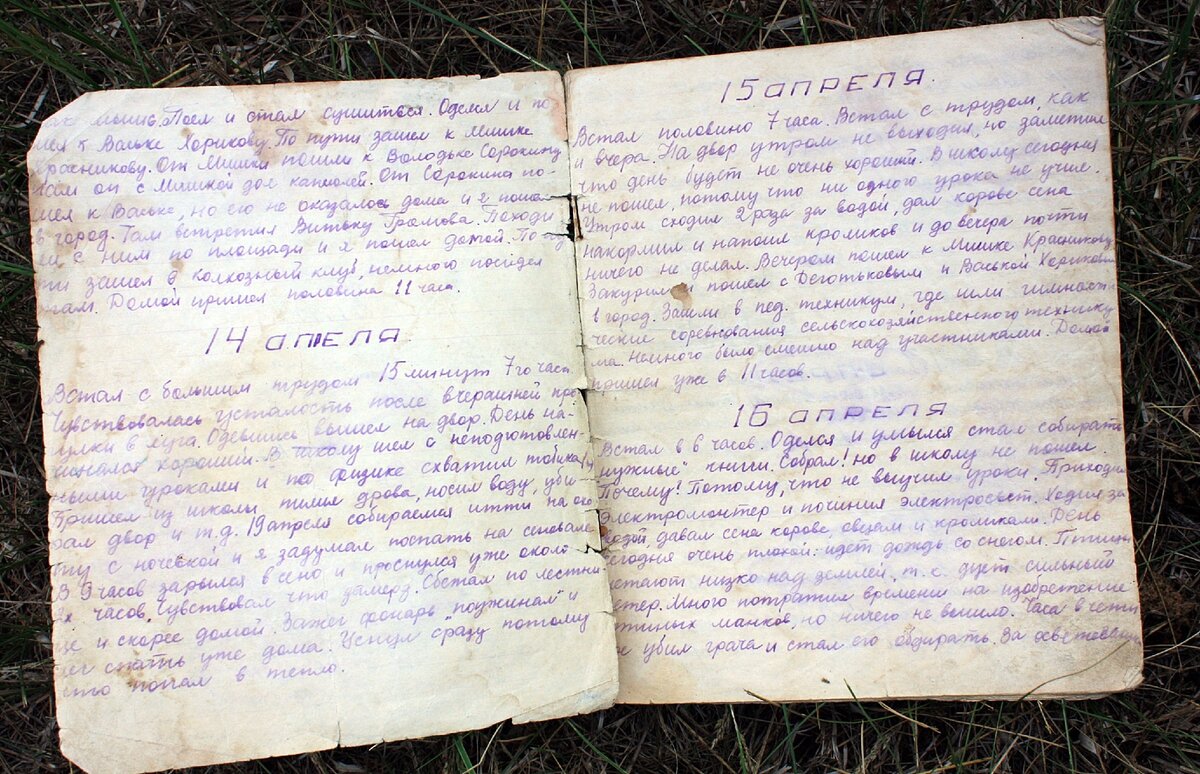 мыть. Поел и стал сушиться. Оделся и по-
шел к Ваське Хорикову. По пути зашел к Мишке
Красникову. От Мишки пошли к Володьке Сорокину
он с Мишкой дал капкалей. От Сорокина по-
шел к Ваське, но его не оказалось дома и я пошел
в город. Там встретил Витьку Громова. Походи
ли с ним по площади и я пошел домой. По пу
ти зашел в колхозный клуб, немного посидел
там. Домой пришел половина 11 часа.
14 АПРЕЛЯ
Встал с большим трудом 15 минут 7го часа
Чувствовалась усталость после вчерашней про
гулки в луга. Одевшись вышел на двор. День на-
чинался хороший. В школу шел с неподготовлен-
ными уроками и по физике схватил
Пришел из школы пилил дрова, носил воду, уби-
рал двор и т.д. 19 апреля собираемся итти на охо
ту с ночевкой и я задумал поспать на сеновале
В 9 часов зарылся в сено и проснулся уже около
2х часов. Чувствовал что замерз. Слетал по лестни
це и скорее домой. Зажег фонарь "поужинал" и
лег спать уже дома. Уснул сразу потому
что попал в тепло.
15 АПРЕЛЯ.
Встал половино 7 часа. Встал с трудом, как
и вчера. На двор утром не выходил, но заметил
что день будет не очень хороший. В школу сегодня
не пошел, потому что ни одного урока не учил.
Утром сходил 2 раза за водой, дал корове сена
накормил и напоил кроликов и до вечера почти
ничего не делал. Вечером пошел к Мишке Красникову.
Закурили и пошел с Деготьковым и Васькой Хориковым
в город. Зашли в пед. техникум, где шли гимнасти
ческие соревнования сельскохозяйственного технику
ма. Немного было смешно над участниками. Домой
пришел уже в 11 часов.
16 АПРЕЛЯ
Встал в 6 часов. Оделся и умылся стал собирать
"нужные" книги. Собрал! но в школу не пошел.
Почему? Потому, что не выучил уроки. Приходил
электромонтер и починил электросвет. Ходил за
водой, давал сена корове, овцам и кроликам. День
сегодня очень плохой: идет дождь со снегом. Птицы
летают низко над землей, т.к. дует сильный
ветер. Много потратил времени на изобретение
манков, но ничего не вышло. Часа в четы
ре убил грача и стал его обдирать. За